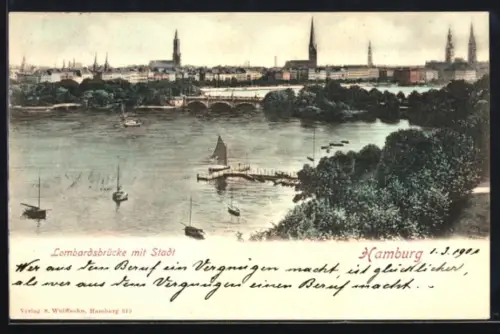 Lombardsbrücke mit Stadt
Hamburg 1.3.1901
Wer aus dem Beruf ein Vergnügen macht, ist glücklicher,
als wer aus dem Vergnügen einen Beruf macht...
Verlag v. Hamburg